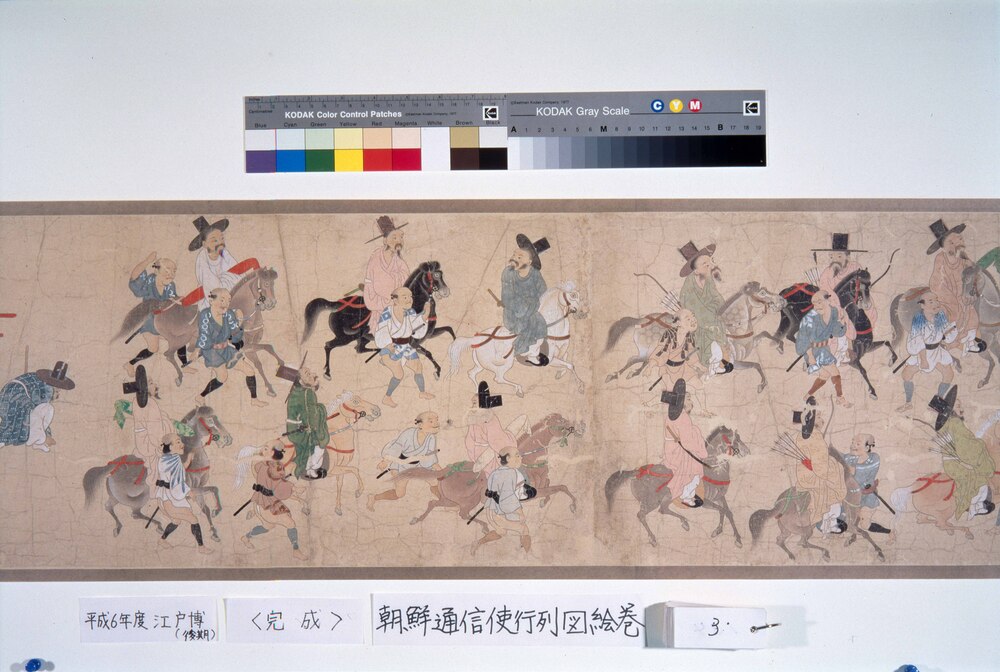 KODAK Color Control Patches
Blue Cyan Green Yellow Red Magenta White Brown Black
KODAK Gray Scale
C Y M
A 1 2 3 4 5 6 M 8 9 10 11 12 13 14 15 B 17 18 19
平成6年度 江戸博
(後期)
〈完成〉
朝鮮通信使行列図絵巻
3.